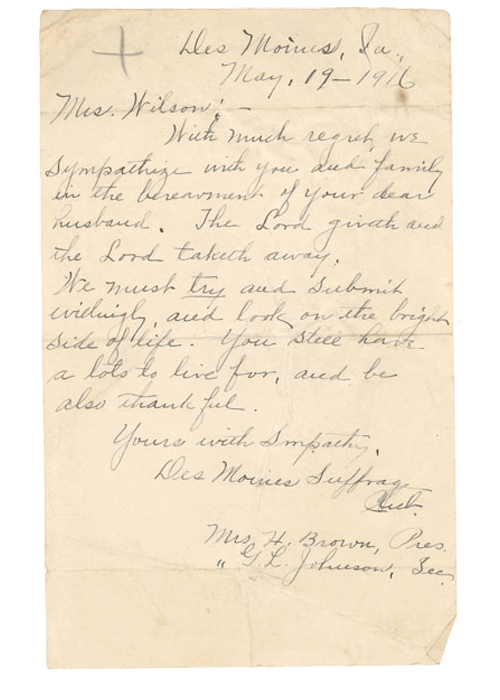 Des Moines, Ia.,
May, 19-1916
Mrs. Wilson:-
With much regret, we
Sympathize with you and family
in the bereavment of your dear
husband. The Lord giveth and
the Lord taketh away.
We must try and submit
willingly, and look on the bright
side of life. You still have
a lots to live for, and be
also thankful.
Yours with Smpathy,
Des Moines Suffrag
Club.
Mrs. H. Brown, Pres.
" G. L. Johnson, Sec.